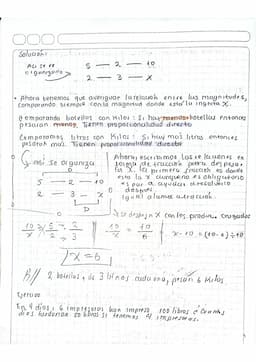 Solución:
Así se
organizaría
5 — 2 — 10
2 — 3 — X
• Ahora tenemos que averiguar la relación entre las magnitudes,
comparando siempre con la magnitud donde está la ingnita X.
Comparando botellas con Kilos: Si hay menos botellas entonces
pesaran menos. Tienen proporcionalidad directa
Comparamos litros con Kilos: Si hay más litros entonces
pesarán más. Tienen proporcionalidad directa
así se organiza
D
5 — 2 — 10
2 — 3 — X
D
Ahora escribimos las relaciones en
forma de fracción para despejar
la X. la primera fracción es donde
esta la X aunque no es obligatorio
después
igual a las otras
Se despeja X con los produc. cruzados
10/X = 5/2 · 2/3
10/X = 10/6
X · 10 = (10 · 6) ÷ 10
X = 6
R// 2 botellas, de 3 litros cada una, pesan 6 Kilos
Ejercicio
En 4 días, 6 impresoras han impreso 100 libros ¿Cuantos
días tardarán 50 libros si tenemos 4 impresoras.